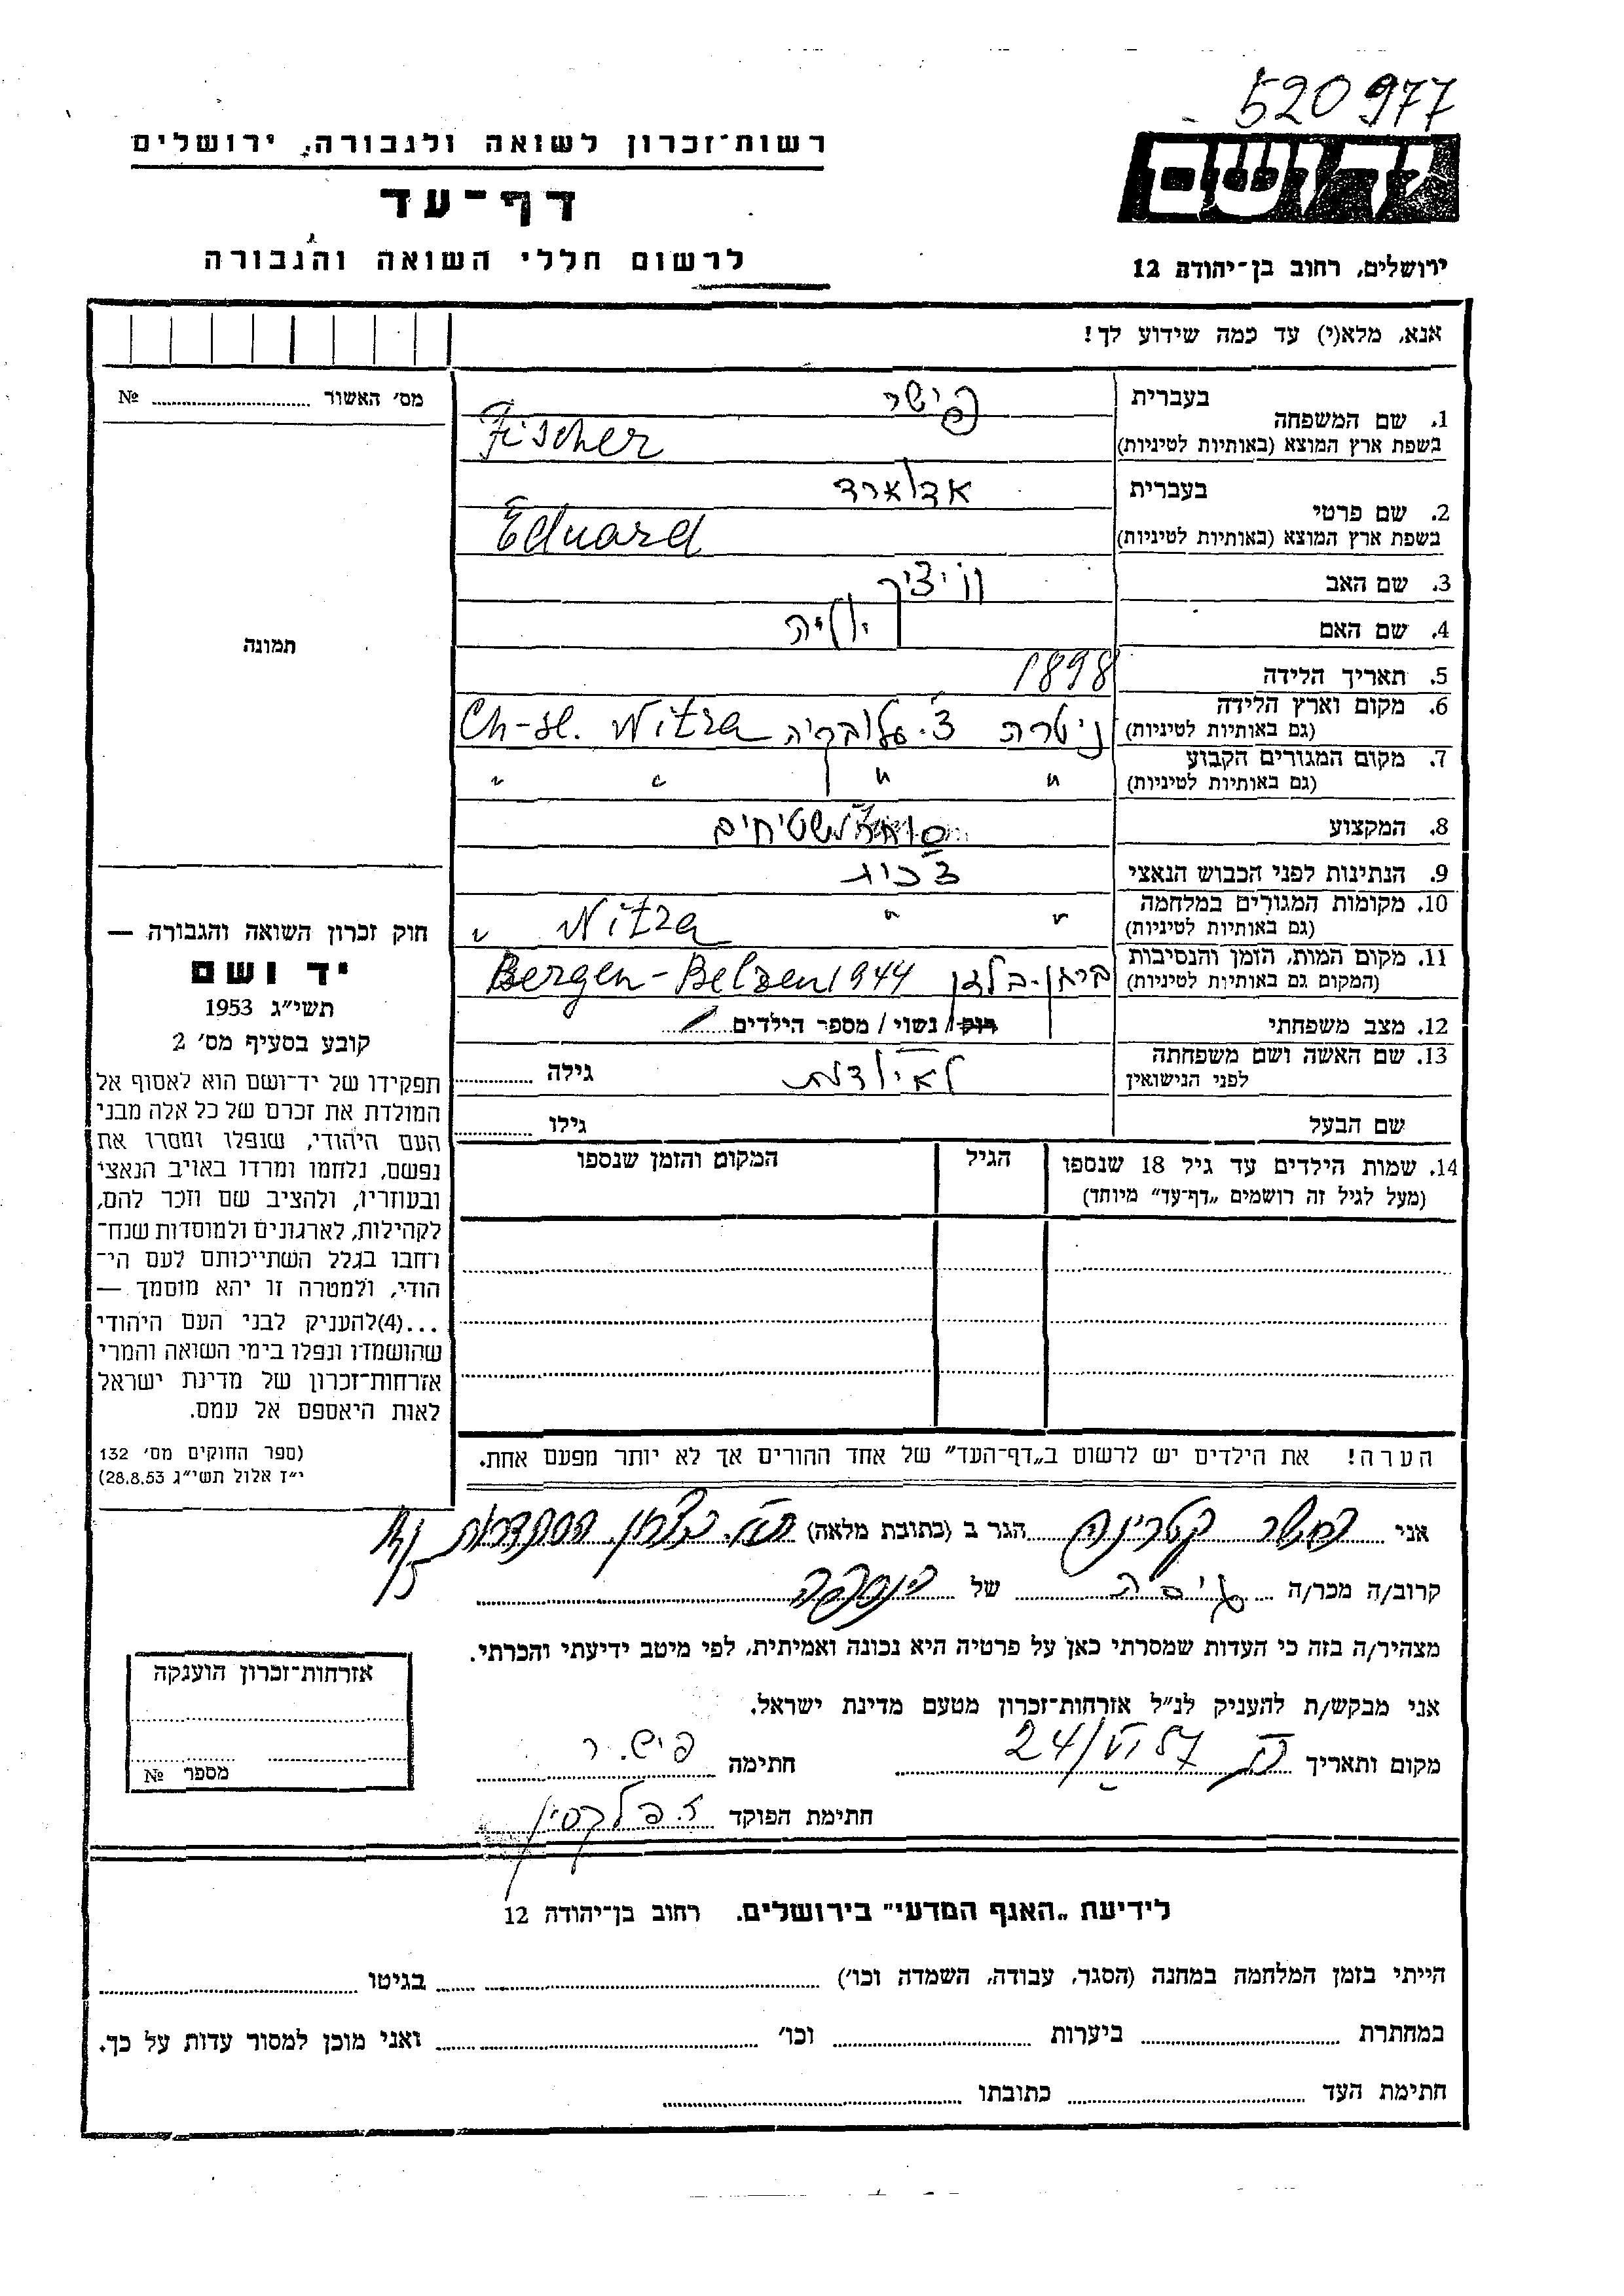 520977
רשות־זכרון לשואה ולגבורה, ירושלים
דף־עד
לרשום חללי השואה והגבורה
ירושלים, רחוב בן־יהודה 12
אנא, מלא(י) עד כמה שידוע לך!
מס׳ האשור № 
תמונה
1. שם המשפחה
בעברית פישר
בשפת ארץ המוצא (באותיות לטיניות) Fischer
2. שם פרטי
בעברית אדוארד
בשפת ארץ המוצא (באותיות לטיניות) Eduard
3. שם האב
4. שם האם
5. תאריך הלידה 1898
6. מקום וארץ הלידה
(גם באותיות לטיניות) ניטרה צ׳. Ch-sl. Nitra
7. מקום המגורים הקבוע
(גם באותיות לטיניות) " " " "
8. המקצוע
9. הנתינות לפני הכבוש הנאצי
10. מקומות המגורים במלחמה
(גם באותיות לטיניות) " " Nitra "
11. מקום המות, הזמן והנסיבות
(המקום גם באותיות לטיניות) Bergen-Belsen 1944
12. מצב משפחתי רווק / נשוי / מספר הילדים
13. שם האשה ושם משפחתה
לפני הנישואין גילה
שם הבעל גילו
14. שמות הילדים עד גיל 18 שנספו
(מעל לגיל זה רושמים „דף־עד״ מיוחד)
הגיל
המקום והזמן שנספו
הערה! את הילדים יש לרשום ב„דף־העד״ של אחד ההורים אך לא יותר מפעם אחת.
חוק זכרון השואה והגבורה —
יד ושם
תשי״ג 1953
קובע בסעיף מס׳ 2
תפקידו של יד־ושם הוא לאסוף אל
המולדת את זכרם של כל אלה מבני
העם היהודי, שנפלו ומסרו את
נפשם, נלחמו ומרדו באויב הנאצי
ובעוזריו, ולהציב שם וזכר להם,
לקהילות, לארגונים ולמוסדות שנח־
רחבו בגלל השתייכותם לעם הי־
הודי, ולמטרה זו יהא מוסמך —
...(4) להעניק לבני העם היהודי
שהושמדו ונפלו בימי השואה והמרי
אזרחות־זכרון של מדינת ישראל
לאות היאספם אל עמם.
(ספר החוקים מס׳ 132
י״ז אלול תשי״ג 28.8.53)
אני פישר קטרינה הגר ב (כתובת מלאה)
קרוב/ה מכר/ה גיסה של
מצהיר/ה בזה כי העדות שמסרתי כאן על פרטיה היא נכונה ואמיתית, לפי מיטב ידיעתי והכרתי.
אני מבקש/ת להעניק לנ״ל אזרחות־זכרון מטעם מדינת ישראל.
מקום ותאריך 24/VI 57 חתימה פישר
חתימת הפוקד
אזרחות־זכרון הוענקה
מספר №
לידיעת „האגף המדעי״ בירושלים. רחוב בן־יהודה 12
הייתי בזמן המלחמה במחנה (הסגר, עבודה, השמדה וכו׳) בגיטו
במחתרת ביערות וכו׳ ואני מוכן למסור עדות על כך.
חתימת העד כתובתו